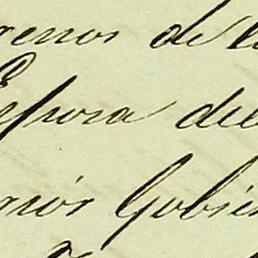 renos de l
Espora del
mós Gobie